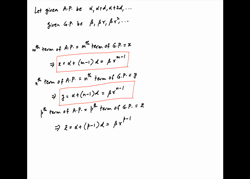 Let given A.P. be α, α+d, α+2d, ...
Given G.P. be β, βr, βr², ...
mᵗʰ term of A.P. = mᵗʰ term of G.P. = x
⇒ x = α+(m-1)d = βr^(m-1)
nᵗʰ term of A.P. = nᵗʰ term of G.P. = y
⇒ y = α+(n-1)d = βr^(n-1)
pᵗʰ term of A.P. = pᵗʰ term of G.P. = z
⇒ z = α+(p-1)d = βr^(p-1)